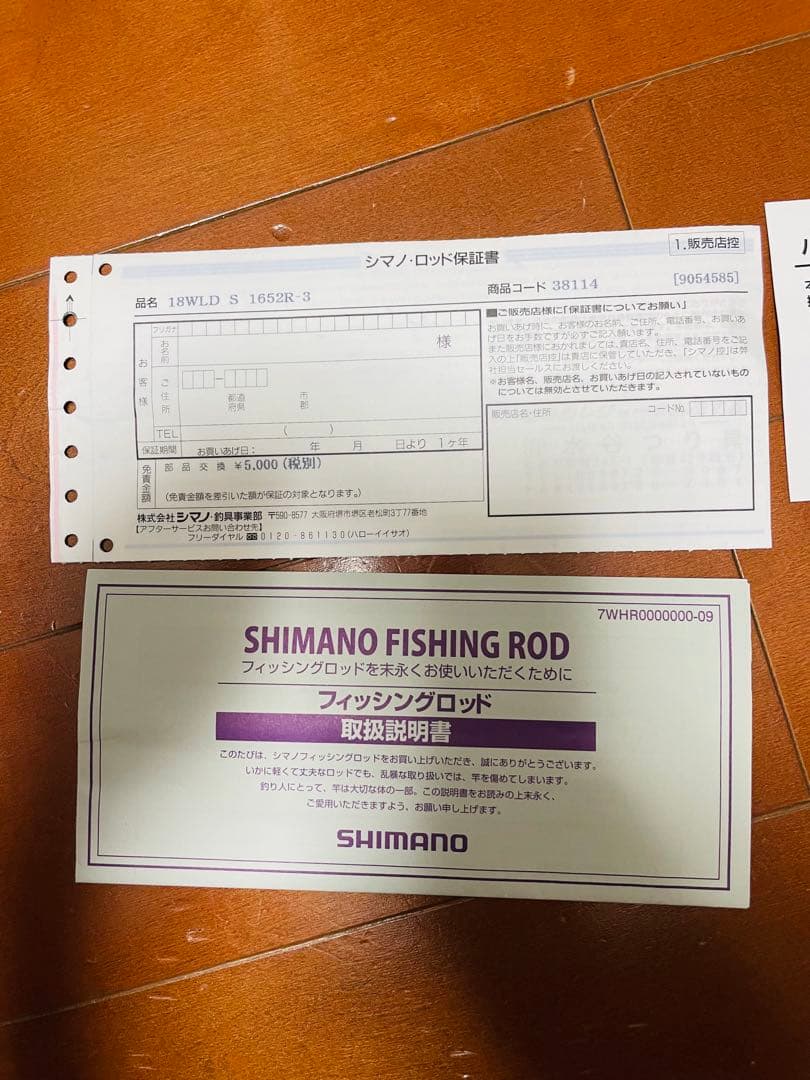 シマノ・ロッド保証書
1.販売店控
品名 18WLD S 1652R-3
商品コード 38114
[9054585]
フリガナ
お名前
様
お客様
ご住所
都道府県
市郡
TEL
( )
保証期間
お買いあげ日: 年 月 日より 1ヶ年
免責金額
部品交換 ¥5,000(税別)
(免責金額を差引いた額が保証の対象となります。)
■ご販売店様に「保証書についてお願い」
お買いあげ時に、お客様のお名前、ご住所、電話番号、お買いあ
げ日をお手数ですが必ずご記入願います。
また販売店様におかれましては、貴店名、住所、電話番号をご記
入の上「販売店控」は貴店に保管していただき、「シマノ控」は弊
社担当セールスにお渡しください。
※お客様名、販売店名、お買いあげ日の記入されていないもの
については無効とさせていただきます。
販売店名・住所
コードNo.
株式会社シマノ・釣具事業部 〒590-8577 大阪府堺市堺区老松町3丁77番地
【アフターサービスお問い合わせ先】
フリーダイヤル 0120-861130(ハローイイサオ)
7WHR0000000-09
SHIMANO FISHING ROD
フィッシングロッドを末永くお使いいただくために
フィッシングロッド
取扱説明書
このたびは、シマノフィッシングロッドをお買い上げいただき、誠にありがとうございます。
いかに軽くて丈夫なロッドでも、乱暴な取り扱いでは、竿を傷めてしまいます。
釣り人にとって、竿は大切な体の一部。この説明書をお読みの上末永く、
ご愛用いただきますよう、お願い申し上げます。
SHIMANO